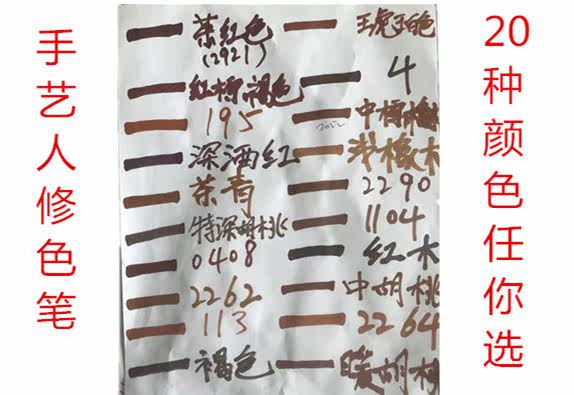 手艺人修色笔
茶红色
(2921)
红棕褐色
195
深酒红
茶青
特深胡桃
0408
2262
113
褐色
4
2052
浅橡木
2290
1104
红木
中胡桃
2264
暖胡桃
20种颜色任你选